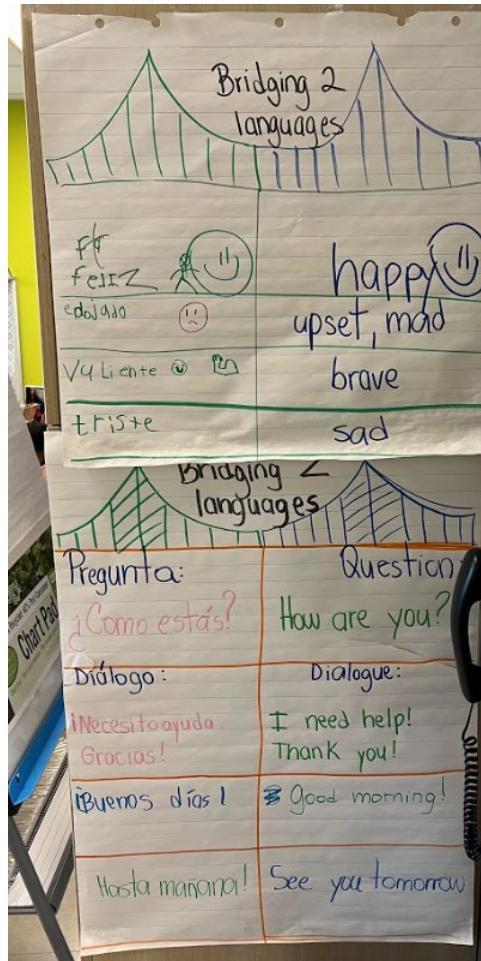 Bridging 2
languages
feliz
happy
edojado
upset, mad
Valiente
brave
triste
sad
Bridging 2
languages
Pregunta:
Question:
¿Como estás?
How are you?
Diálogo:
Dialogue:
¡Necesito ayuda
Gracias!
I need help!
Thank you!
¡Buenos días!
Good morning!
Hasta mañana!
See you tomorrow
Chart Pad